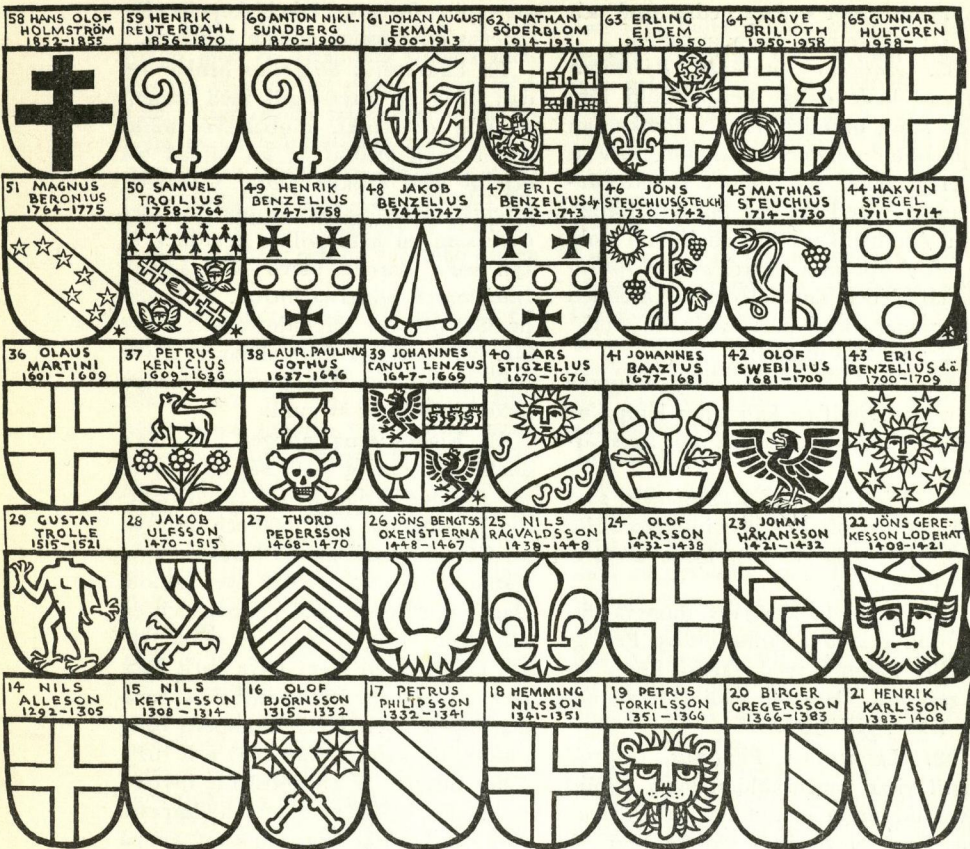 58 HANS OLOF
HOLMSTRÖM
1852-1855
59 HENRIK
REUTERDAHL
1856-1870
60 ANTON NIKL.
SUNDBERG
1870-1900
61 JOHAN AUGUST
EKMAN
1900-1913
62 NATHAN
SÖDERBLOM
1914-1931
63 ERLING
EIDEM
1931-1950
64 YNGVE
BRILIOTH
1950-1958
65 GUNNAR
HULTGREN
1958-
51 MAGNUS
BERONIUS
1764-1775
50 SAMUEL
TROILIUS
1758-1764
49 HENRIK
BENZELIUS
1747-1758
48 JAKOB
BENZELIUS
1744-1747
47 ERIC
BENZELIUS d.y.
1742-1743
46 JÖNS
STEUCHIUS (STEUCH)
1730-1742
45 MATHIAS
STEUCHIUS
1714-1730
44 HAKVIN
SPEGEL
1711-1714
36 OLAUS
MARTINI
1601-1609
37 PETRUS
KENICIUS
1609-1636
38 LAUR. PAULINUS
GOTHUS
1637-1646
39 JOHANNES
CANUTI LENÆUS
1647-1669
40 LARS
STIGZELIUS
1670-1676
41 JOHANNES
BAAZIUS
1677-1681
42 OLOF
SWEBILIUS
1681-1700
43 ERIC
BENZELIUS d.ä.
1700-1709
29 GUSTAF
TROLLE
1515-1521
28 JAKOB
ULFSSON
1470-1515
27 THORD
PEDERSSON
1468-1470
26 JÖNS BENGTSS.
OXENSTIERNA
1448-1467
25 NILS
RAGVALDSSON
1438-1448
24 OLOF
LARSSON
1432-1438
23 JOHAN
HÅKANSSON
1421-1432
22 JÖNS GERE-
KESSON LODEHAT
1408-1421
14 NILS
ALLESON
1292-1305
15 NILS
KETTILSSON
1308-1314
16 OLOF
BJÖRNSSON
1315-1332
17 PETRUS
PHILIPSSON
1332-1341
18 HEMMING
NILSSON
1341-1351
19 PETRUS
TORKILSSON
1351-1366
20 BIRGER
GREGERSSON
1366-1383
21 HENRIK
KARLSSON
1383-1408